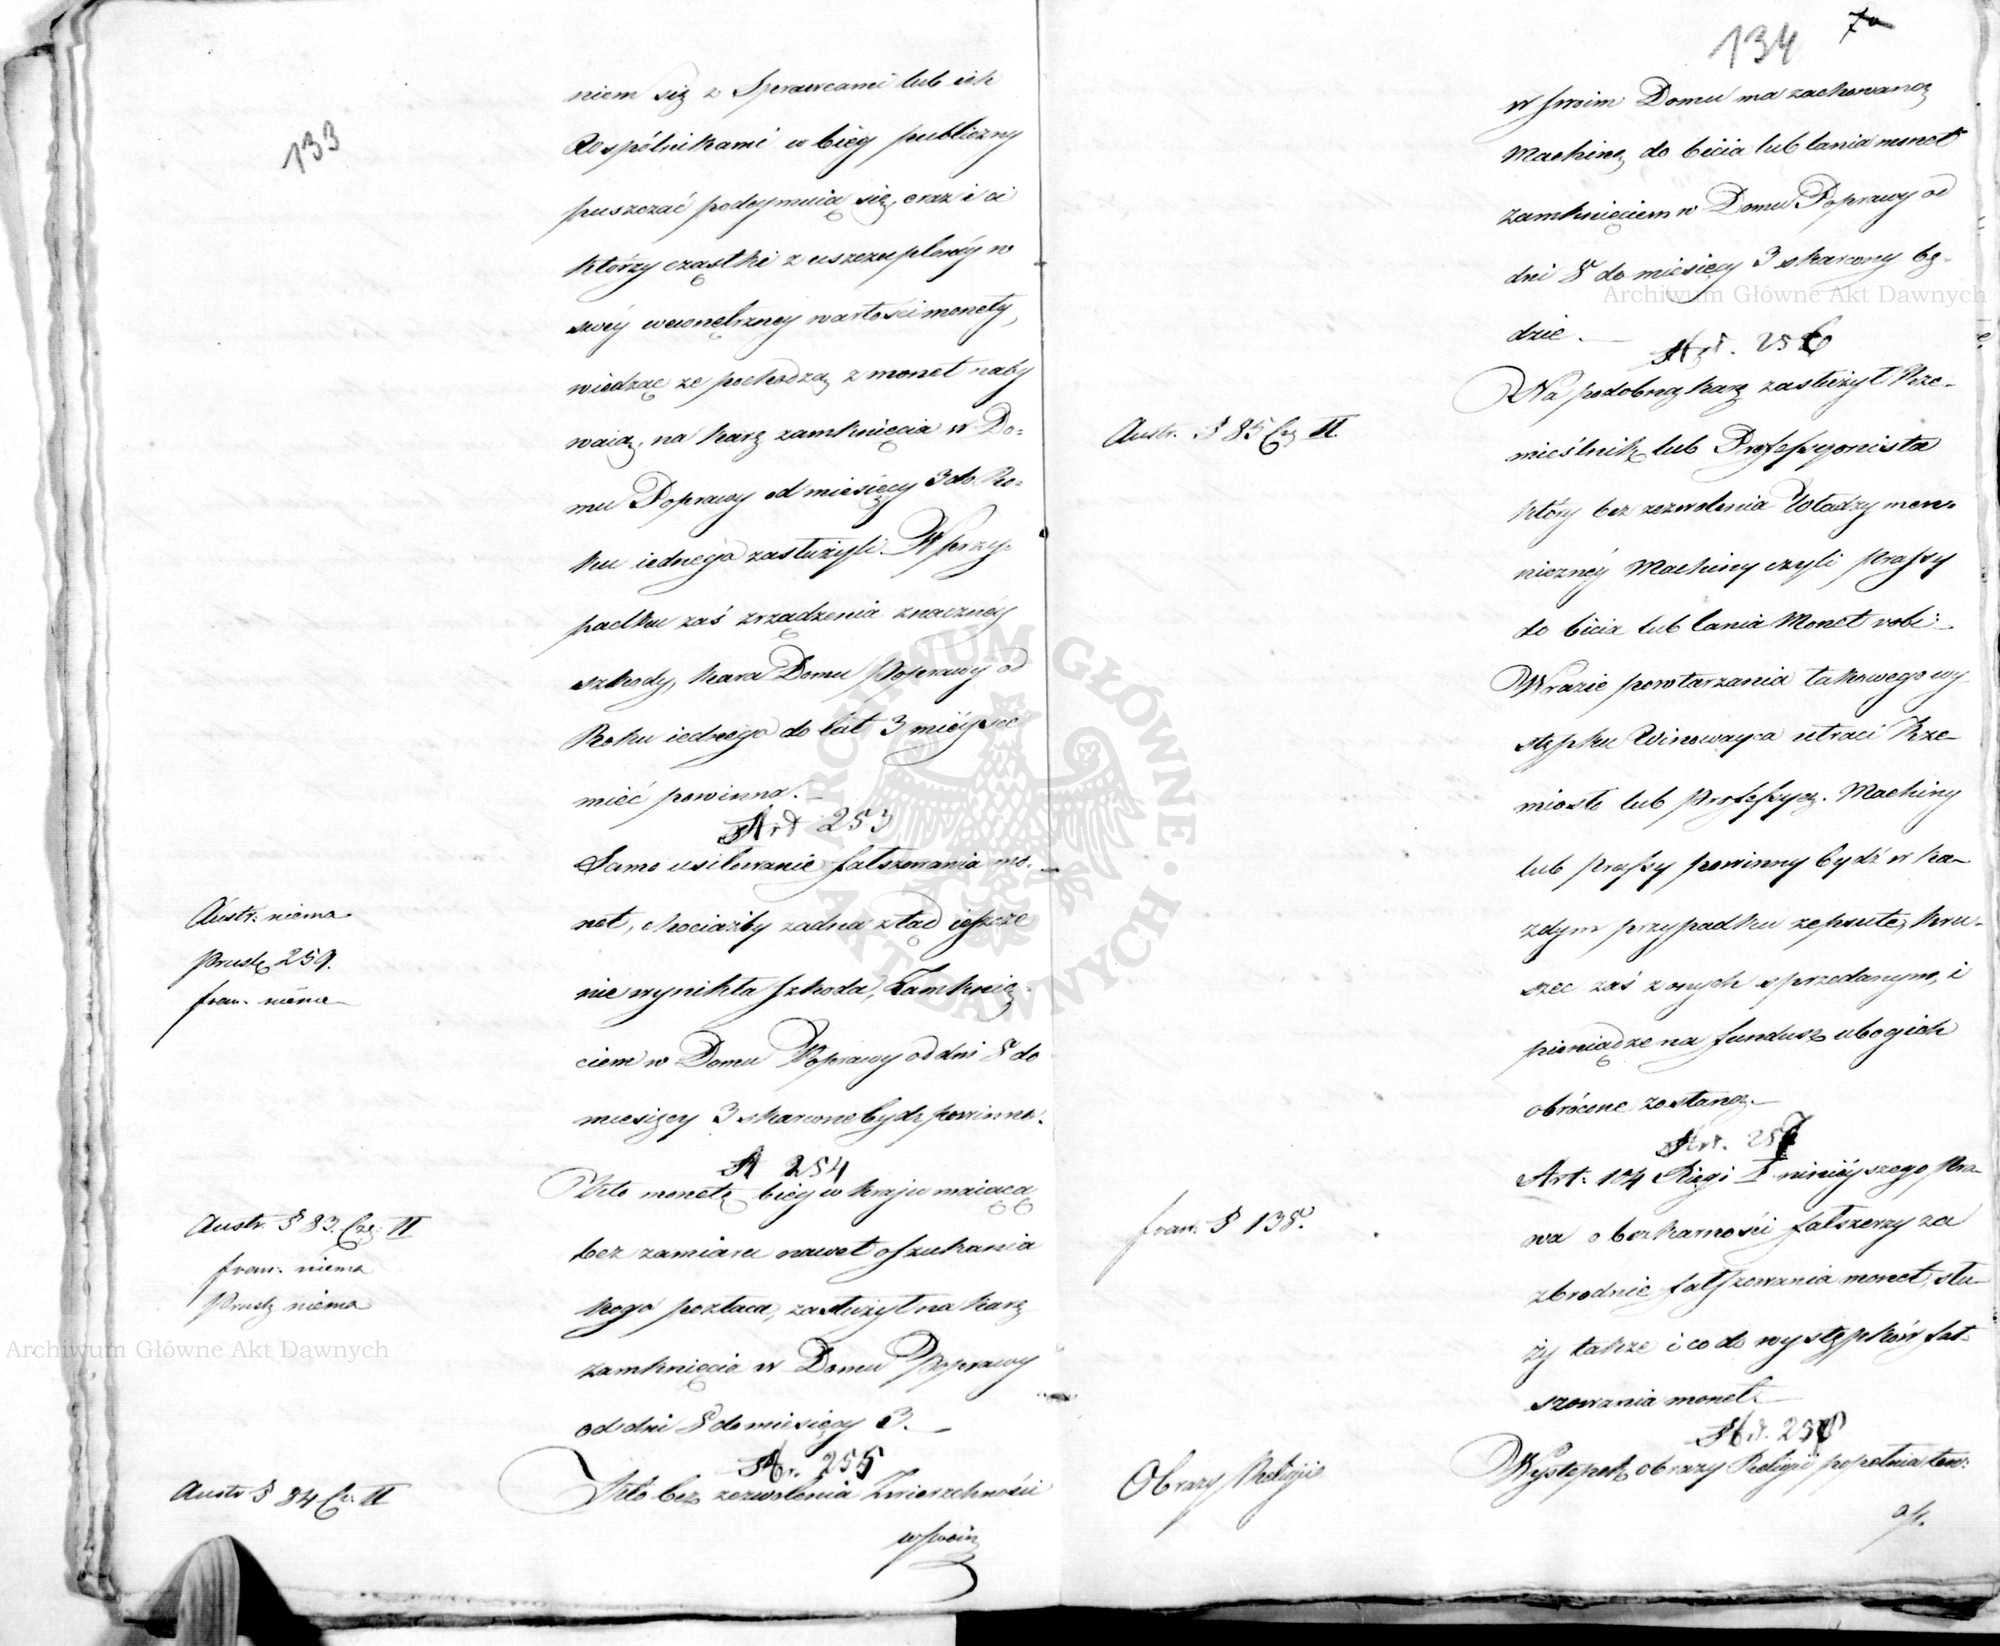 133
niem się z Sprawcami lub ich
Wspólnikami w bieg publiczny
puszczać podeymuią się, oraz i ci
którzy cząstki z uszczuploney w
swey wewnętrzney wartości monety,
wiedząc ze pochodzą z monet naby
waią, na karę zamknięcia w Do=
mu Poprawy od miesięcy 3 do Ro=
ku iednego zasłużyli. W przy-
padku zaś zrządzenia znaczney
szkody, kara Domu Poprawy od
Roku iednego do lat 3 mieysce
mieć powinna.
Art 253
Samo usiłowanie fałszowania mo-
net, chociażby zadna ztąd ieszcze
nie wynikła szkoda, Zamknię-
ciem w Domu Poprawy od dni 8 do
miesięcy 3 skarcone bydz powinno.
Austr: niema
Prusk 259.
fran. niema
A 254
Kto monetę bieg w kraju maiącą
bez zamiaru nawet oszukania
kogo pozłaca, zasłużył na karę
zamknięcia w Domu Poprawy
od dni 8 do miesięcy 3.
Austr. § 83. Czę: II
fran: niema
Prusk niema
Ar. 255
Kto bez zezwolenia Zwierzchności
Austr § 84 Cz. II
w swoim
134
w swoim Domu ma zachowaną
Machinę do bicia lub lania monet
zamknięciem w Domu Poprawy od
dni 8 do miesięcy 3 skarcony bę-
dzie.
Art. 256
Na podobną karę zasłużył Rze-
mieślnik lub Professyonista
który bez zezwolenia Władzy men-
niczney Machiny czyli prassy
do bicia lub lania Monet robi.
W razie powtarzania takowego wy
stępku Winowayca utraci Rze-
miosło lub Professyą. Machiny
lub prassy powinny bydź w ka-
zdym przypadku zepsute, kru-
szec zaś z onych sprzedanym, i
pieniądze na fundusz ubogich
obrócone zostaną.
Austr. § 85 Czę II.
Art. 257
Art: 104 Xięgi I ninieyszego Pra-
wa o bezkarności fałszerzy za
zbrodnię fałszowania monet, słu-
ży także i co do występków fał-
szowania monet.
fran: § 138.
Art. 258
Występek obrazy Religii popełnia ten:
Obrazy Religii